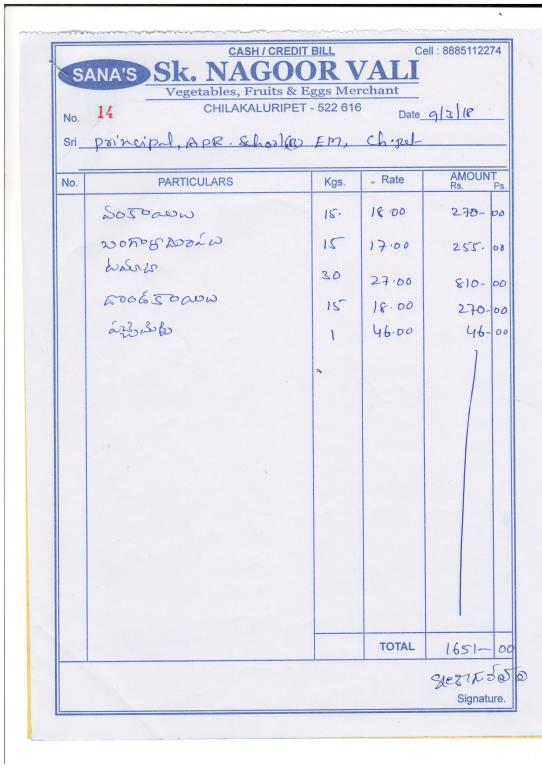 CASH / CREDIT BILL Cell : 8885112274
SANA'S Sk. NAGOOR VALI
Vegetables, Fruits & Eggs Merchant
CHILAKALURIPET - 522 616
No. 14 Date 9/3/18
Sri principal, APR. School(B) EM, Ch.pet
No. PARTICULARS Kgs. Rate AMOUNT
Rs. Ps.
వంకాయలు 15. 18.00 270-00
బంగాళదుంపలు 15 17.00 255.00
టమాటా 30 27.00 810-00
దొండకాయలు 15 18.00 270-00
పచ్చిమిర్చి 1 46.00 46-00
TOTAL 1651-00
Signature.